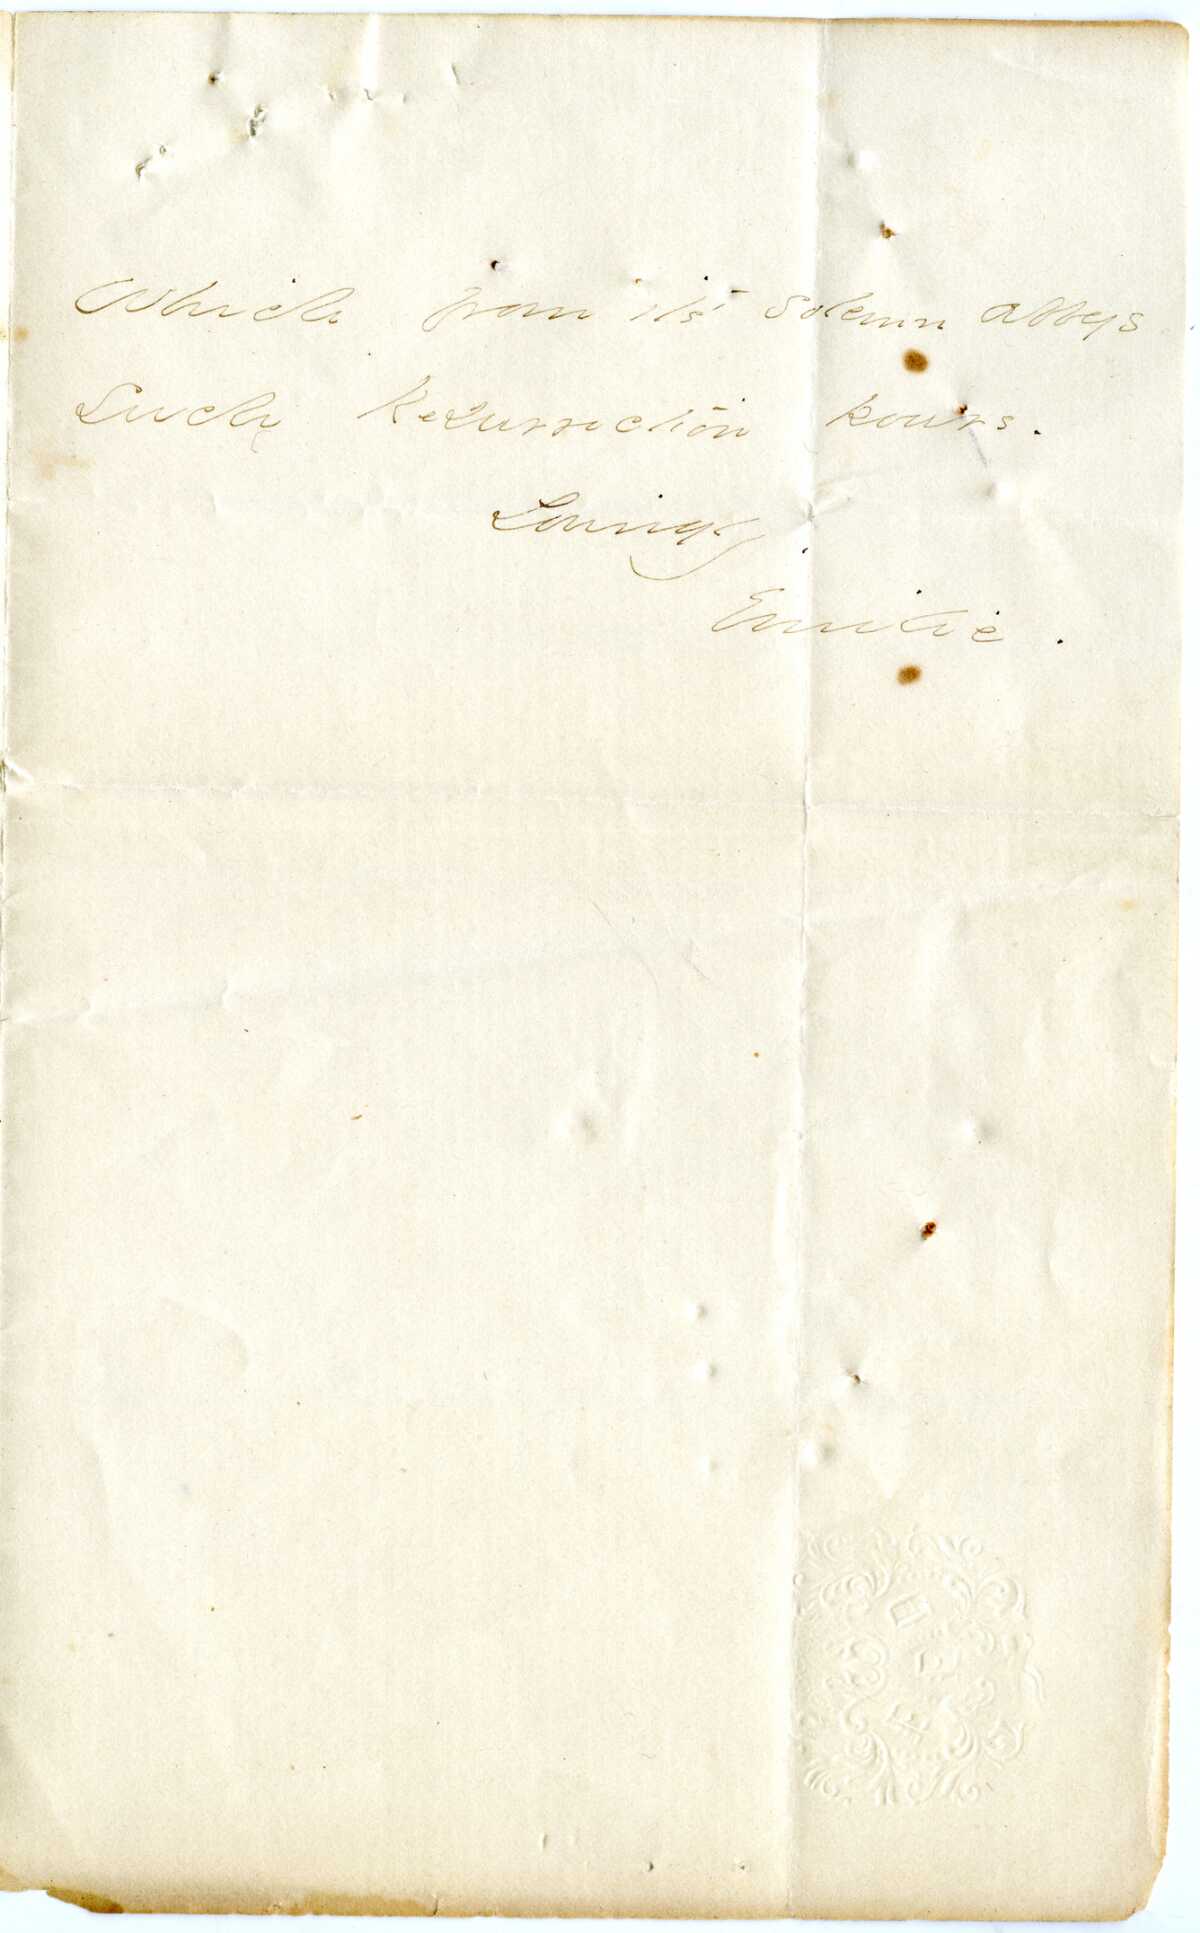 Which from it's solemn abbeys
Such Resurrection pours.
Lovingly.
Emilie.